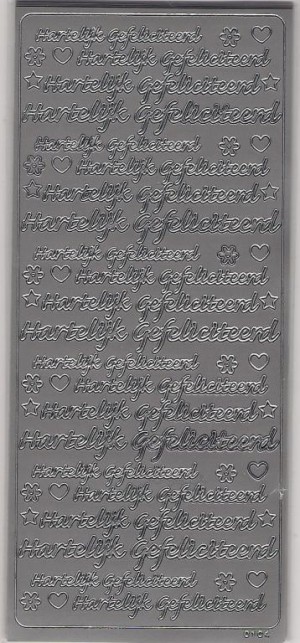 Hartelijk Gefeliciteerd
Hartelijk Gefeliciteerd
Hartelijk Gefeliciteerd
Hartelijk Gefeliciteerd
Hartelijk Gefeliciteerd
Hartelijk Gefeliciteerd
Hartelijk Gefeliciteerd
Hartelijk Gefeliciteerd
Hartelijk Gefeliciteerd
Hartelijk Gefeliciteerd
Hartelijk Gefeliciteerd
Hartelijk Gefeliciteerd
Hartelijk Gefeliciteerd
Hartelijk Gefeliciteerd
Hartelijk Gefeliciteerd
Hartelijk Gefeliciteerd
Hartelijk Gefeliciteerd
Hartelijk Gefeliciteerd
Hartelijk Gefeliciteerd
Hartelijk Gefeliciteerd
Hartelijk Gefeliciteerd
Hartelijk Gefeliciteerd
0104